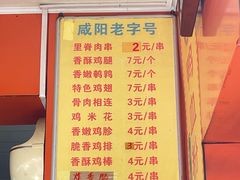 咸阳老字号
里脊肉串 2元/串
香酥鸡腿 7元/个
香嫩鹌鹑 7元/个
特色鸡翅 7元/串
骨肉相连 3元/串
鸡米花 3元/串
香嫩鸡胗 4元/串
脆香鸡排 3元/串
香酥鸡棒 4元/串
4元/串